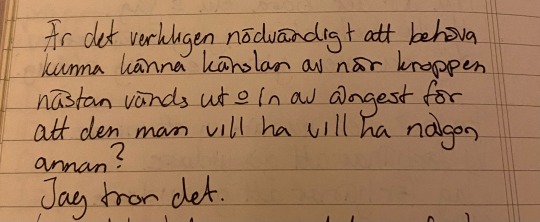 Är det verkligen nödvändigt att behöva
kunna känna känslan av när kroppen
nästan vänds ut o in av ångest för
att den man vill ha vill ha någon
annan?
Jag tror det.